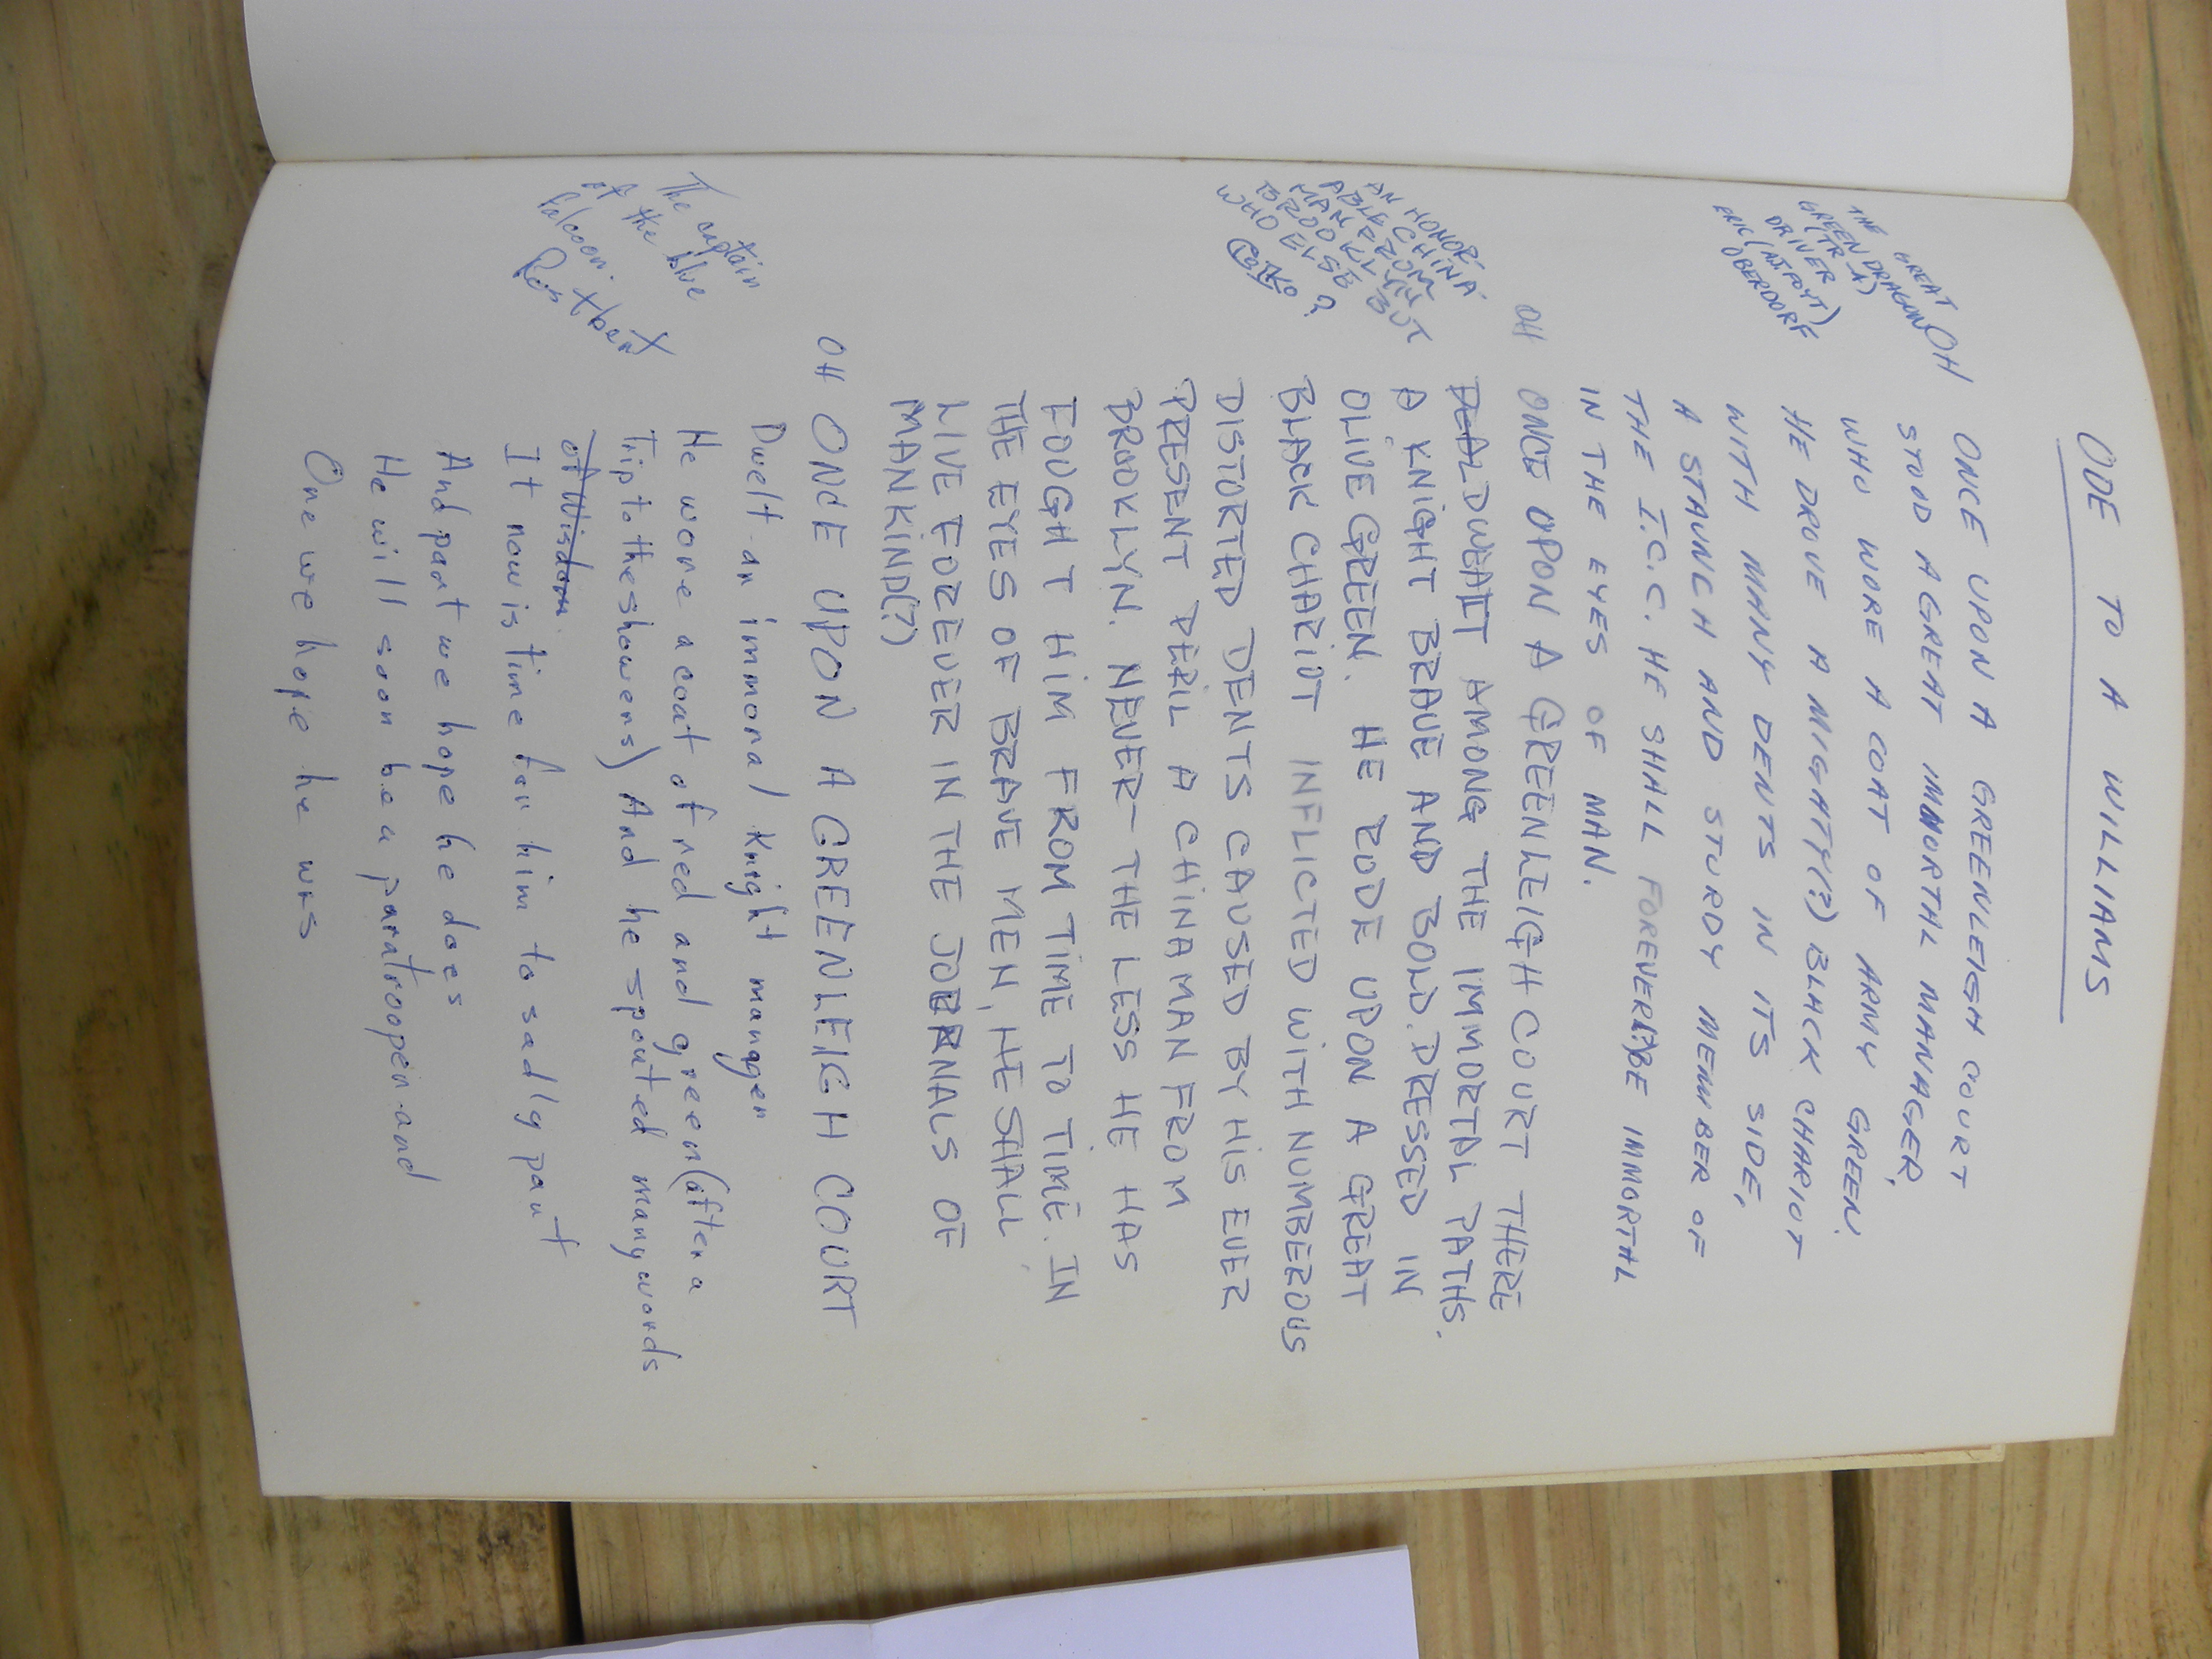 ODE TO A WILLIAMS
OH ONCE UPON A GREENLEIGH COURT
STOOD A GREAT IMMORTAL MANAGER,
WHO WORE A COAT OF ARMY GREEN.
HE DROVE A MIGHTY(?) BLACK CHARIOT
WITH MANY DENTS IN ITS SIDE,
A STAUNCH AND STURDY MEMBER OF
THE I.C.C. HE SHALL FOREVER BE IMMORTAL
IN THE EYES OF MAN.
THE GREAT
GREEN DRAGON
(TR-4)
DRIVER
ERIC (NIPOYT)
OBERDORF
OH ONCE UPON A GREENLEIGH COURT THERE
DWELT AMONG THE IMMORTAL PATHS.
A KNIGHT BRAVE AND BOLD. DRESSED IN
OLIVE GREEN. HE RODE UPON A GREAT
BLACK CHARIOT INFLICTED WITH NUMBEROUS
DISTORTED DENTS CAUSED BY HIS EVER
PRESENT PERIL A CHINAMAN FROM
BROOKLYN. NEVER-THE LESS HE HAS
FOUGHT HIM FROM TIME TO TIME. IN
THE EYES OF BRAVE MEN, HE SHALL
LIVE FOREVER IN THE JOURNALS OF
MANKIND(?)
AN HONOR-
ABLE CHINA-
MAN FROM
BROOKLYN BUT
WHO ELSE ?
OH ONCE UPON A GREENLEIGH COURT
Dwelt an immoral Knight manager
He wore a coat of red and green (after a
Trip to the showers) And he spouted many words
of Wisdom.
It now is time for him to sadly part
And part we hope he does
He will soon be a paratrooper and
One we hope he was
The captain
of the blue
falcoon.